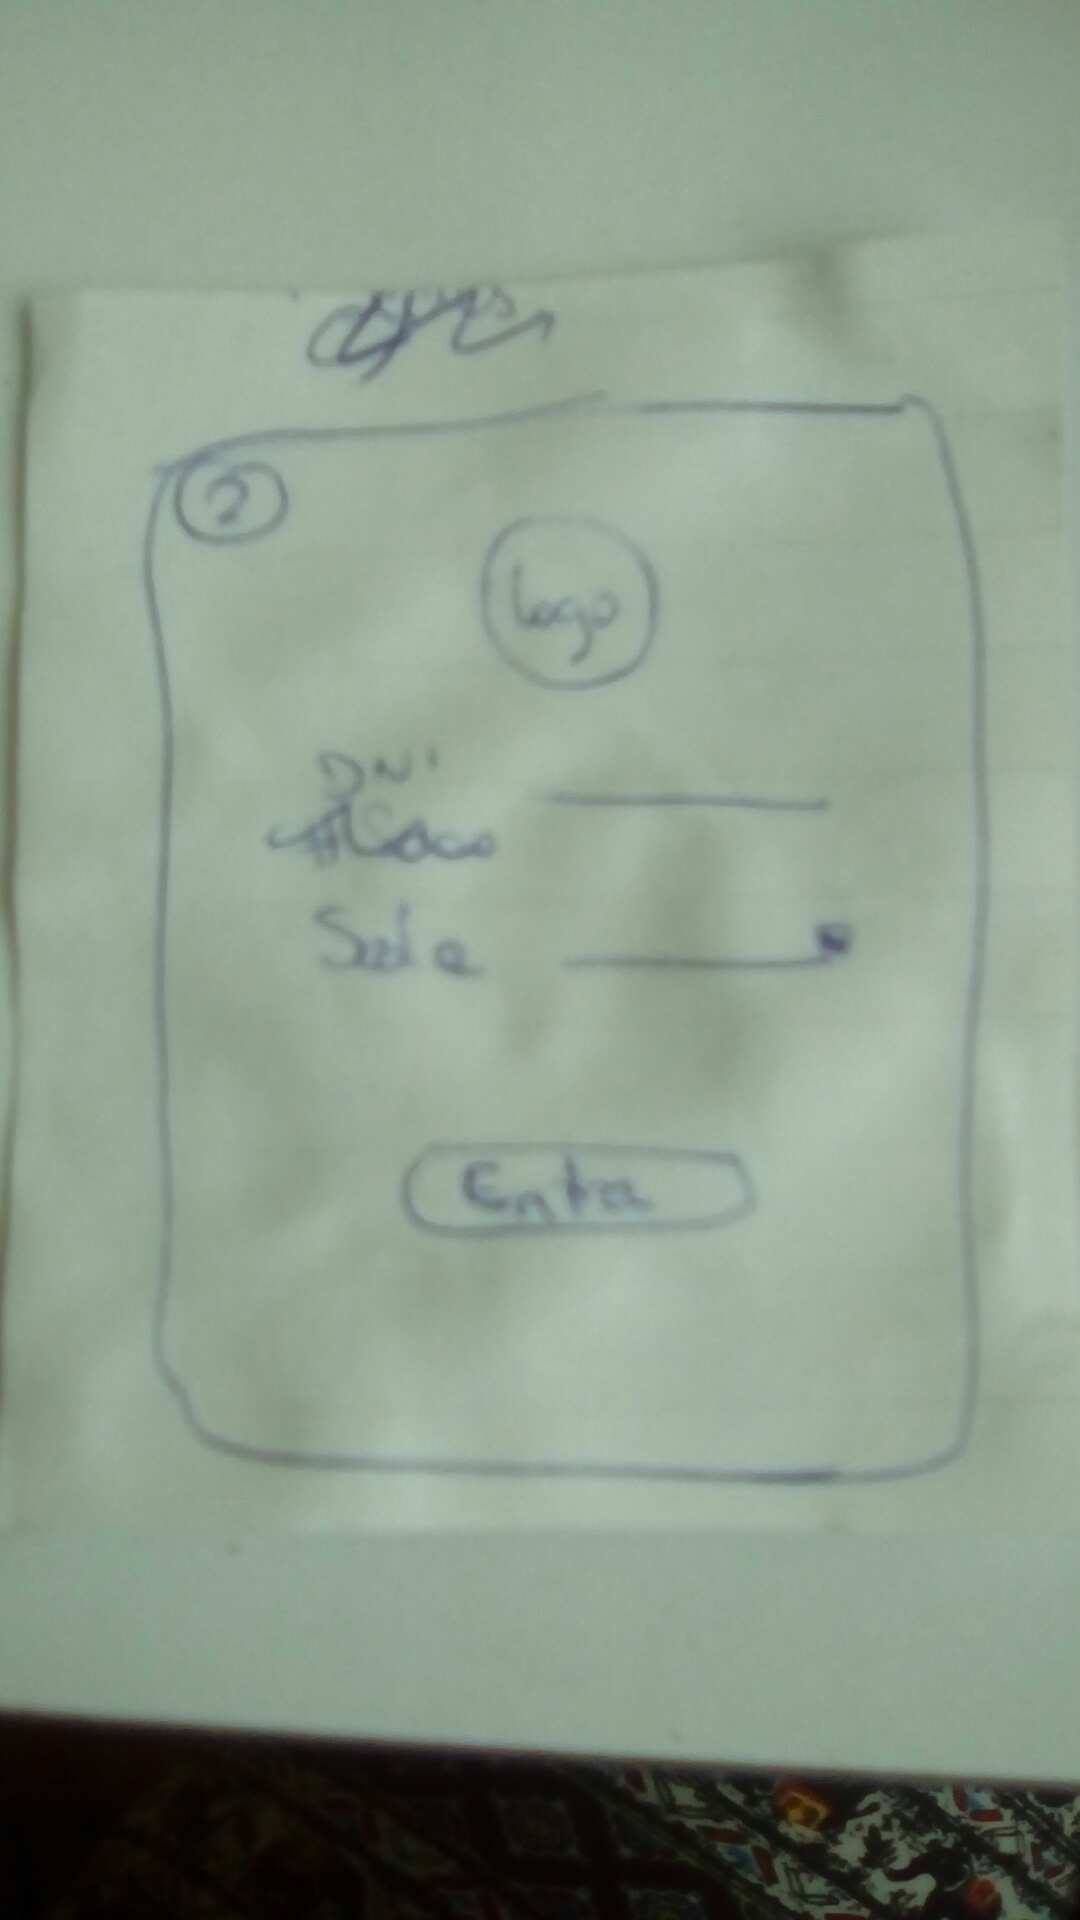 2
Logo
DNI
Sede
Entra